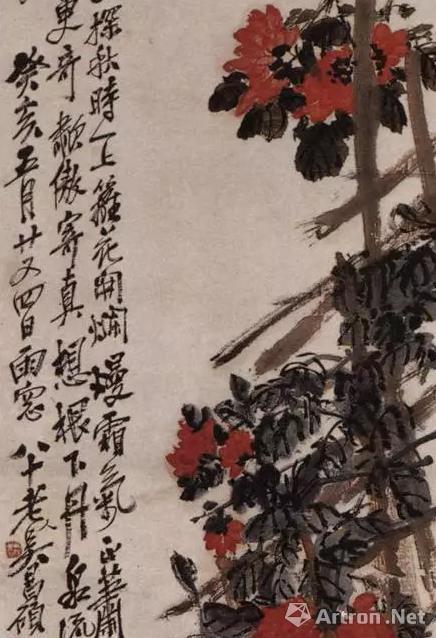 探秋時一上籬花開爛熳霜氣正蕭閑
更奇歗傲寄真想根下丹泉流
癸亥五月廿又四日雨窓八十老人吳昌碩
Artron.Net